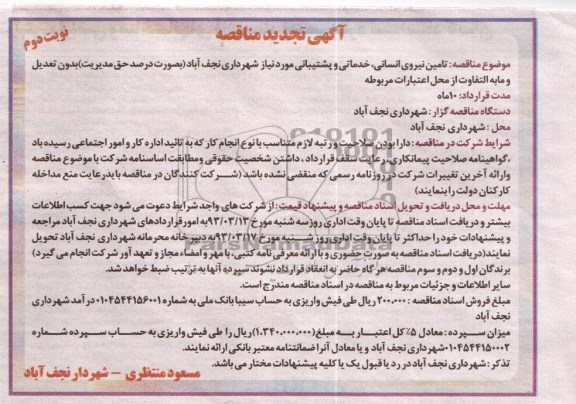 آگهی تجدید مناقصه
نوبت دوم
موضوع مناقصه: تامین نیروی انسانی، خدماتی و پشتیبانی مورد نیاز شهرداری نجف آباد (بصورت درصد حق مدیریت) بدون تعدیل
و مابه التفاوت از محل اعتبارات مربوطه
مدت قرارداد: ۱۰ماه
دستگاه مناقصه گزار: شهرداری نجف آباد
محل: شهرداری نجف آباد
شرایط شرکت در مناقصه: دارا بودن صلاحیت و رتبه لازم متناسب با نوع انجام کار که به تائید اداره کار و امور اجتماعی رسیده باد
،گواهینامه صلاحیت پیمانکاری، رعایت سقف قرارداد، داشتن شخصیت حقوقی و مطابقت اساسنامه شرکت با موضوع مناقصه
وارائه آخرین تغییرات شرکت در روزنامه رسمی که منقضی نشده باشد (شرکت کنندگان در مناقصه باید رعایت منع مداخله
کارکنان دولت را بنمایند)
مهلت و محل دریافت و تحویل اسناد مناقصه و پیشنهاد قیمت: از شرکت های واجد شرایط دعوت می شود جهت کسب اطلاعات
بیشتر و دریافت اسناد مناقصه تا پایان وقت اداری روز سه شنبه مورخ ۹۳/۰۳/۱۳ به امور قراردادهای شهرداری نجف آباد مراجعه
و پیشنهادات خود را حداکثر تا پایان وقت اداری روز شنبه مورخ ۹۳/۰۳/۱۷ به دبیرخانه محرمانه شهرداری نجف آباد تحویل
نمایند (دریافت اسناد مناقصه به صورت حضوری و با ارائه معرفی نامه کتبی، با مهر و امضاء مجاز و تعهد آور شرکت انجام می گیرد)
برندگان اول و دوم و سوم مناقصه هرگاه حاضر به انعقاد قرارداد نشوند سپرده آنها به ترتیب ضبط خواهد شد.
سایر اطلاعات و جزئیات مربوط به مناقصه در اسناد مناقصه مندرج است.
مبلغ فروش اسناد مناقصه: ۲۰۰.۰۰۰ ریال طی فیش واریزی به حساب سیبا بانک ملی به شماره ۰۱۰۴۵۴۴۱۵۶۰۰۱ درآمد شهرداری
نجف آباد
میزان سپرده: معادل ۵٪ کل اعتبار به مبلغ (۱.۳۴۰.۰۰۰.۰۰۰) ریال را طی فیش واریزی به حساب سپرده شماره
۰۱۰۴۵۴۴۱۵۰۰۰۲ شهرداری نجف آباد و یا معادل آنرا ضمانتنامه معتبر بانکی ارائه نمایند.
تذکر: شهرداری نجف آباد در رد یا قبول یک یا کلیه پیشنهادات مختار می باشد.
مسعود منتظری - شهردار نجف آباد
ParsNamadData